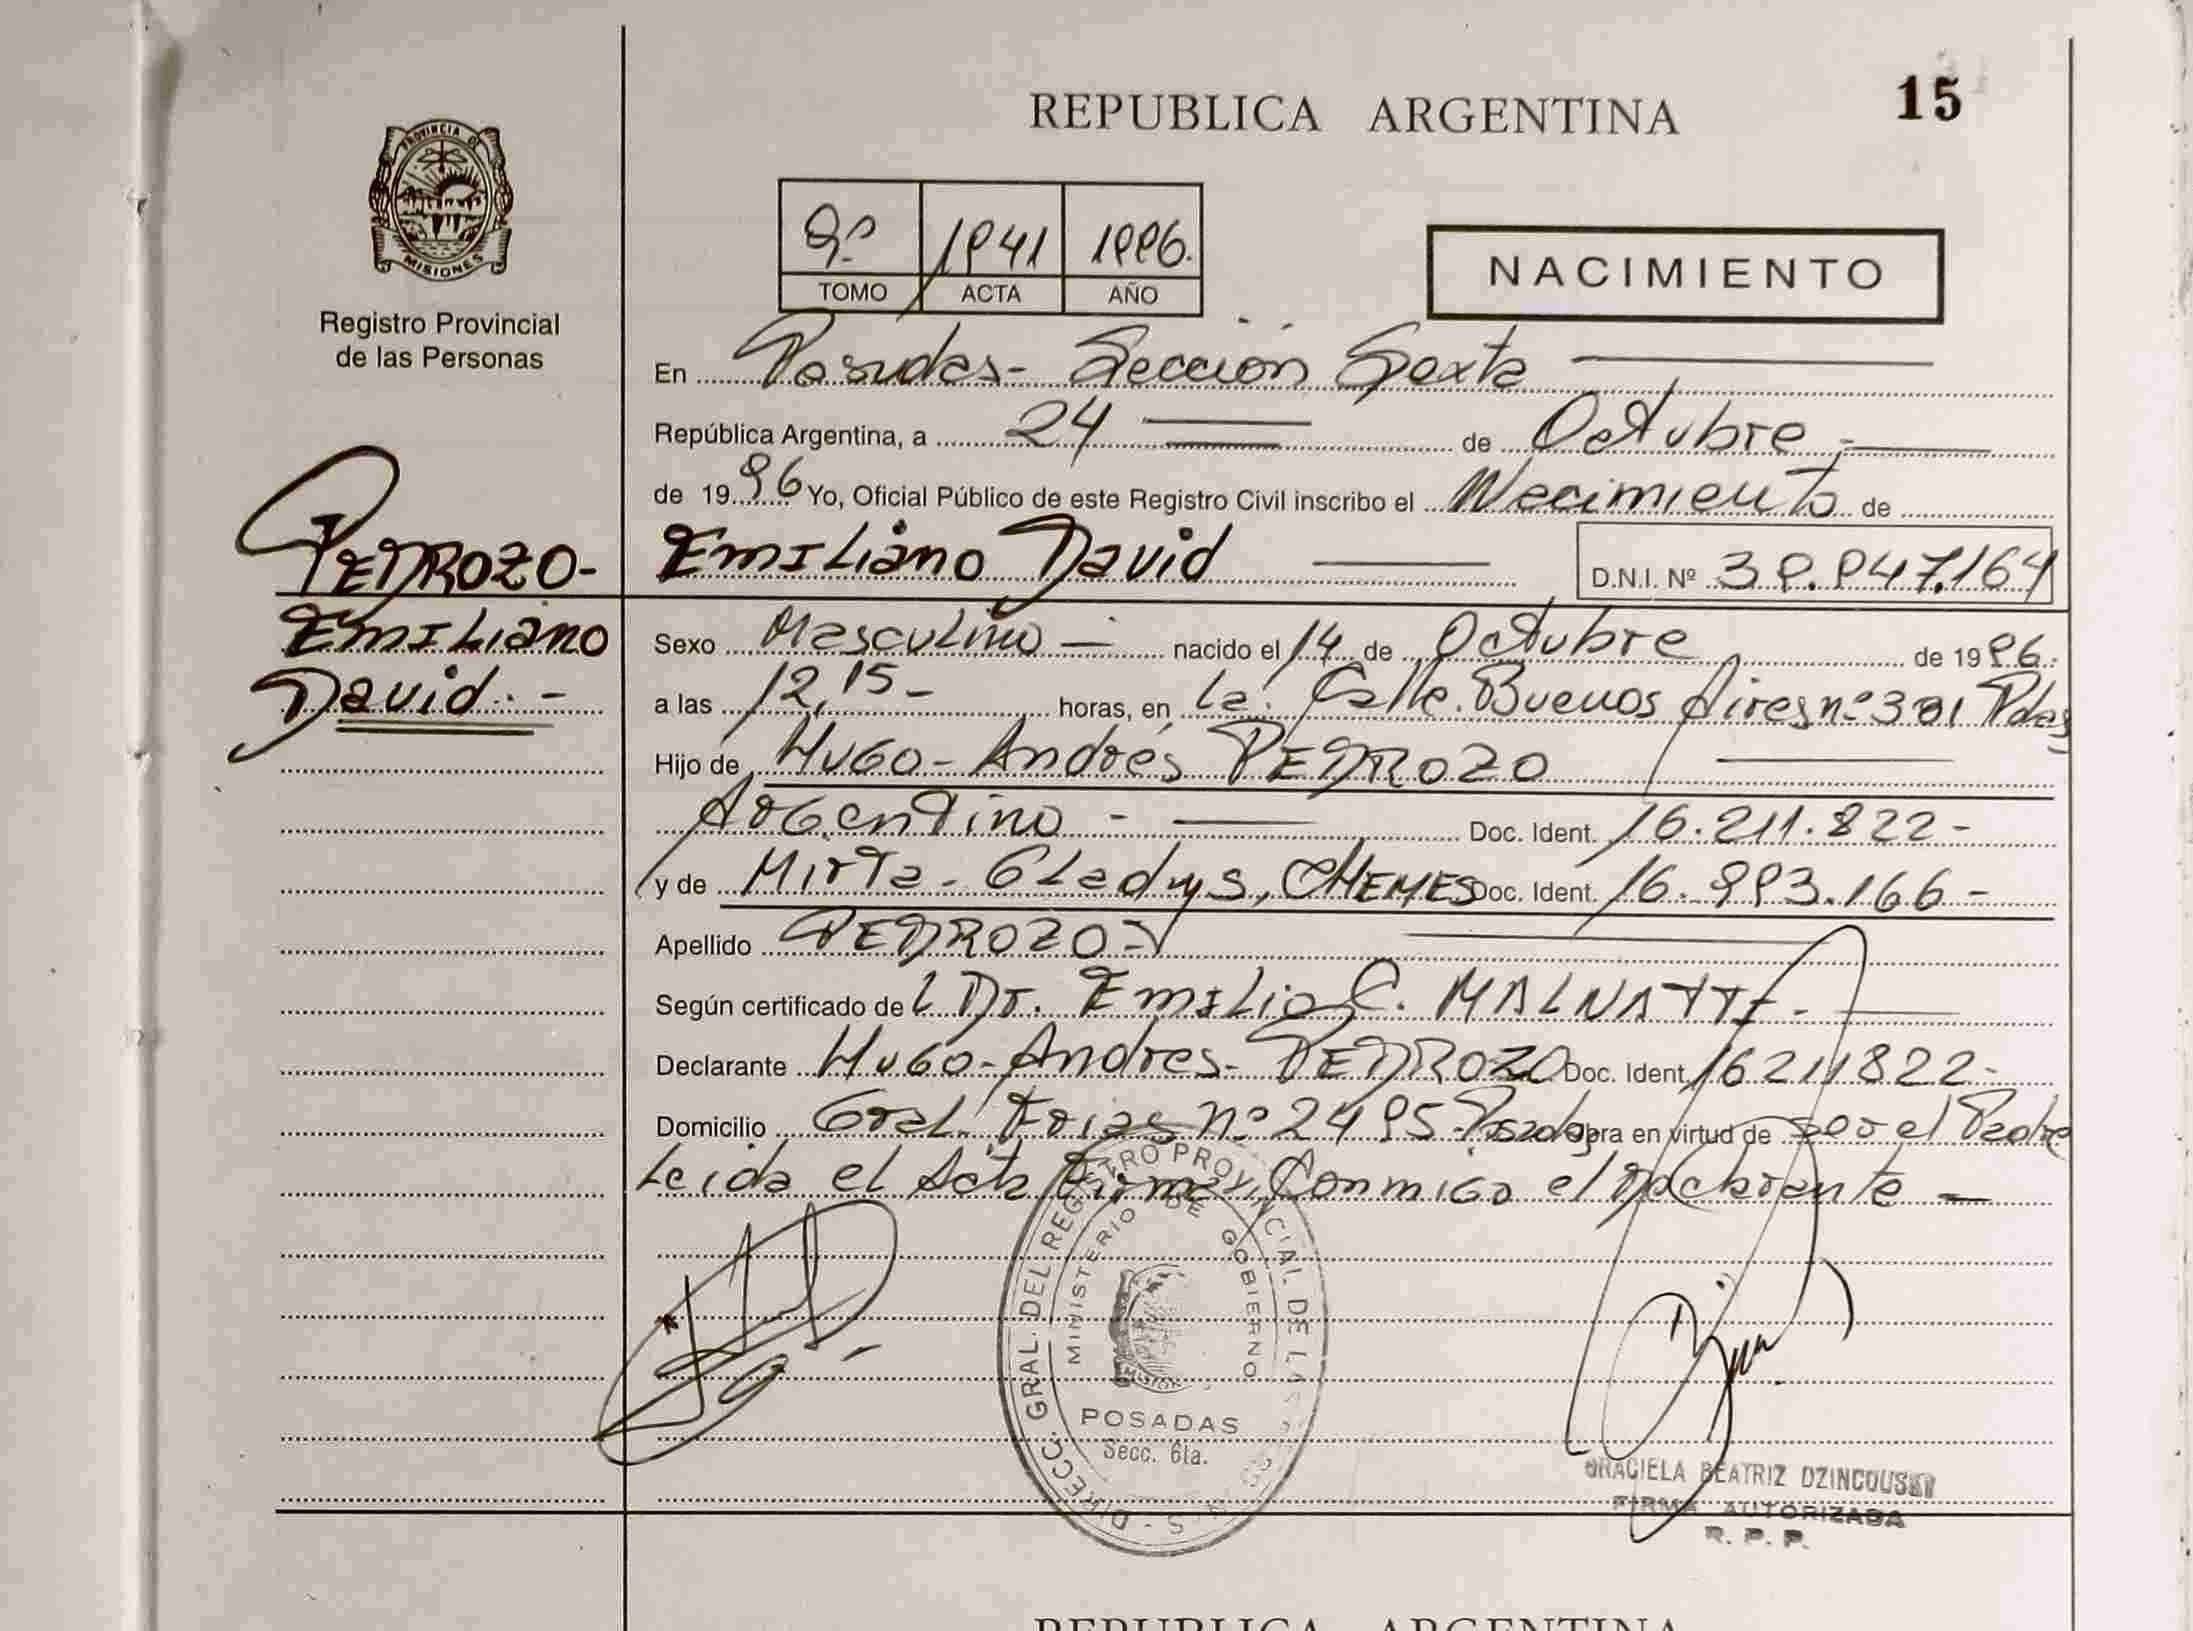 REPUBLICA ARGENTINA
15
PROVINCIA DE
MISIONES
Registro Provincial
de las Personas
9º 1941 1996.
TOMO ACTA AÑO
NACIMIENTO
En Posadas- Sección Sexta
República Argentina, a 24 de Octubre -
de 1996 Yo, Oficial Público de este Registro Civil inscribo el Nacimiento de
PEDROZO- Emiliano David D.N.I. Nº 39.947.164
Emiliano Sexo Masculino - nacido el 14 de Octubre de 1996.
David.- a las 12,15- horas, en la Calle Buenos Aires nº 301 Pdas
Hijo de Hugo-Andrés PEDROZO
Argentino - Doc. Ident. 16.211.822-
y de Mirta-Gladys, CHEMES Doc. Ident. 16.993.166-
Apellido PEDROZO-
Según certificado del Dr. Emilio C. MALNATTI-
Declarante Hugo-Andres-PEDROZO Doc. Ident. 16211822-
Domicilio Gral. Frias nº 2495-Posadas obra en virtud de ser el Padre
Leida el Acta Firma Conmigo el Declarante -
DIRECC. GRAL. DEL REGISTRO PROVINCIAL DE LAS
MINISTERIO DE GOBIERNO
MISIONES
POSADAS
Secc. 6ta.
GRACIELA BEATRIZ DZINCOUSKY
FIRMA AUTORIZADA
R. P. P.
REPUBLICA ARGENTINA